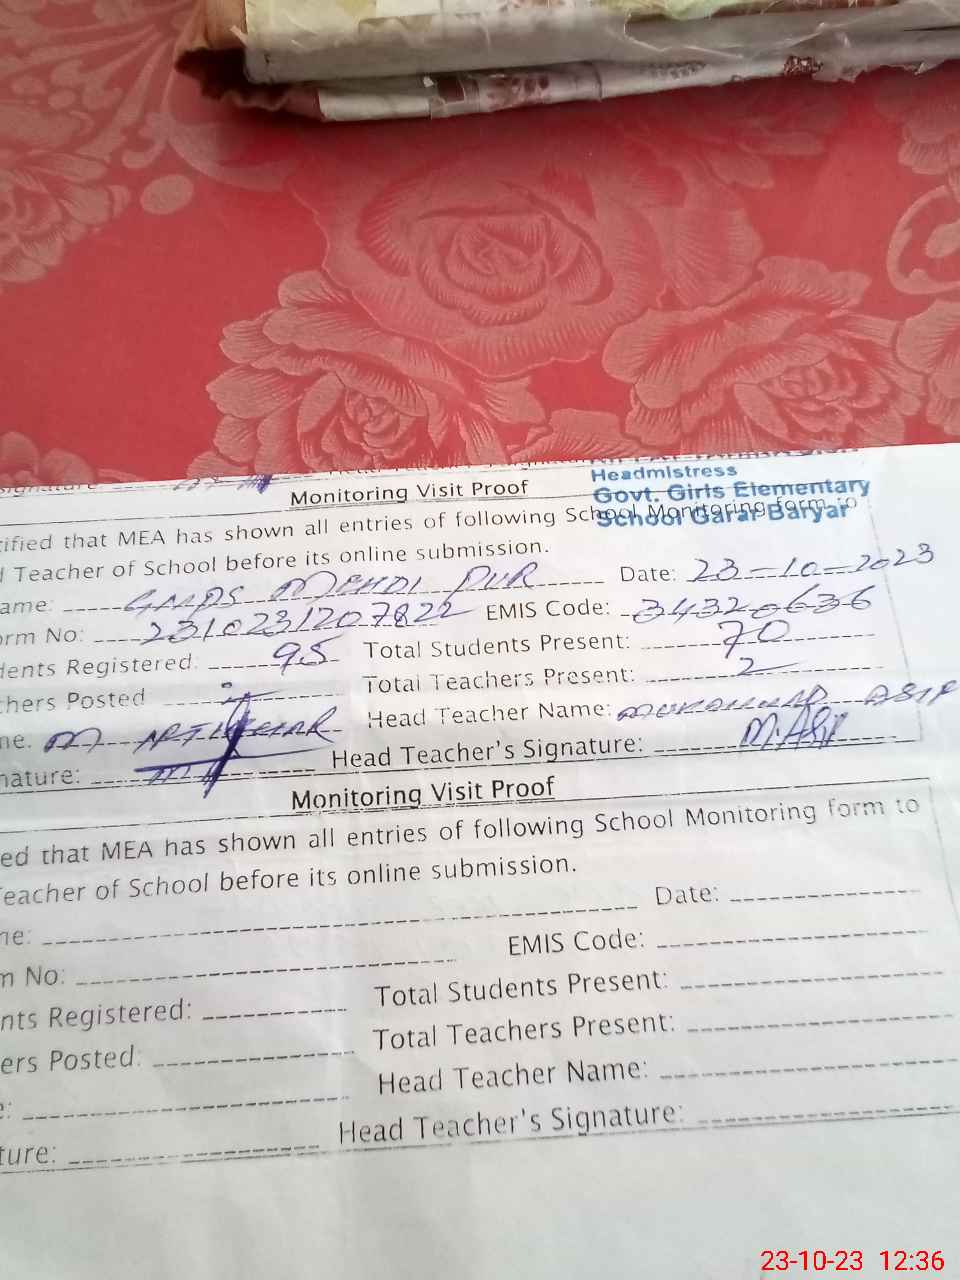 Monitoring Visit Proof
Headmistress
Govt. Girls Elementary
School Garar Baryar
tified that MEA has shown all entries of following School Monitoring form to
d Teacher of School before its online submission.
ame: MEHDI PUR Date: 23-10-2023
orm No: 2310231207822 EMIS Code: 34320636
dents Registered: 95 Total Students Present: 70
chers Posted Total Teachers Present: 2
me. M Head Teacher Name: ASIF
nature: Head Teacher's Signature: M.Asif
Monitoring Visit Proof
ed that MEA has shown all entries of following School Monitoring form to
Teacher of School before its online submission.
ne: Date:
m No: EMIS Code:
nts Registered: Total Students Present:
ers Posted: Total Teachers Present:
e: Head Teacher Name:
ture: Head Teacher's Signature:
23-10-23 12:36